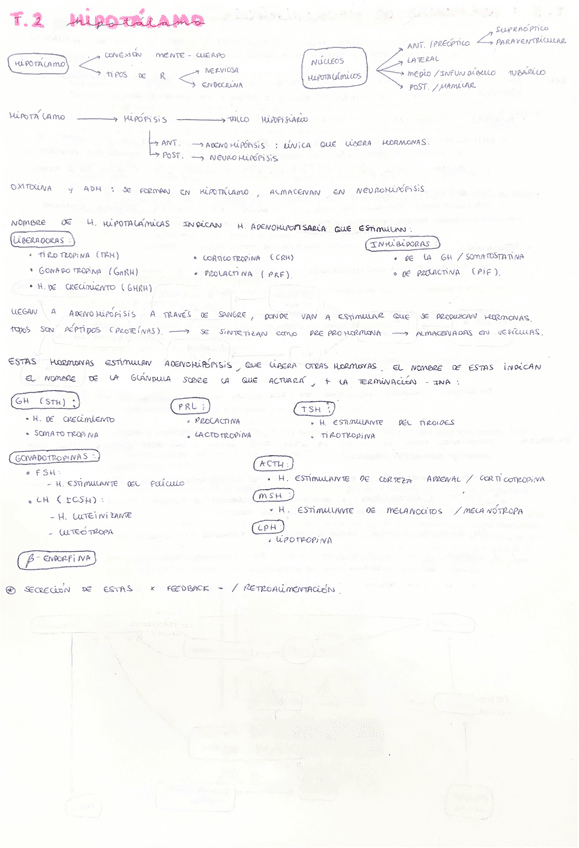 T.2 HIPOTÁLAMO
HIPOTÁLAMO
CONEXIÓN MENTE - CUERPO
TIPOS DE R
NERVIOSA
ENDOCRINA
NÚCLEOS HIPOTALÁMICOS
ANT. / PREÓPTICO
SUPRAÓPTICO
PARAVENTRICULAR
LATERAL
MEDIO / INFUNDÍBULO TUBÁRICO
POST. / MAMILAR
HIPOTÁLAMO → HIPÓFISIS → TALLO HIPOFISIARIO
↳ ANT. → ADENOHIPÓFISIS : ÚNICA QUE LIBERA HORMONAS.
↳ POST. → NEUROHIPÓFISIS
OXITOCINA Y ADH : SE FORMAN EN HIPOTÁLAMO, ALMACENAN EN NEUROHIPÓFISIS
NOMBRE DE H. HIPOTALÁMICAS INDICAN H. ADENOHIPOFISARIA QUE ESTIMULAN :
LIBERADORAS :
• TIROTROPINA (TRH)
• GONADOTROPINA (GnRH)
• H. DE CRECIMIENTO (GHRH)
• CORTICOTROPINA (CRH)
• PROLACTINA (PRF)
INHIBIDORAS
• DE LA GH / SOMATOSTATINA
• DE PROLACTINA (PIF).
LLEGAN A ADENOHIPÓFISIS A TRAVÉS DE SANGRE, DONDE VAN A ESTIMULAR QUE SE PRODUZCAN HORMONAS.
TODOS SON PÉPTIDOS (PROTEÍNAS). → SE SINTETIZAN COMO PREPROHORMONA → ALMACENADAS EN VESÍCULAS.
ESTAS HORMONAS ESTIMULAN ADENOHIPÓFISIS, QUE LIBERA OTRAS HORMONAS. EL NOMBRE DE ESTAS INDICAN
EL NOMBRE DE LA GLÁNDULA SOBRE LA QUE ACTUARÁ, + LA TERMINACIÓN -INA :
GH (STH) :
• H. DE CRECIMIENTO
• SOMATOTROPINA
PRL :
• PROLACTINA
• LACTOTROPINA
TSH :
• H. ESTIMULANTE DEL TIROIDES
• TIROTROPINA
GONADOTROPINAS :
• FSH :
- H. ESTIMULANTE DEL FOLÍCULO
• LH (ICSH) :
- H. LUTEINIZANTE
- LUTEÓTROPA
ACTH :
• H. ESTIMULANTE DE CORTEZA ADRENAL / CORTICOTROPINA
MSH :
• H. ESTIMULANTE DE MELANOCITOS / MELANÓTROPA
LPH
• LIPOTROPINA
β-ENDORFINA
⊛ SECRECIÓN DE ESTAS × FEEDBACK - / RETROALIMENTACIÓN.